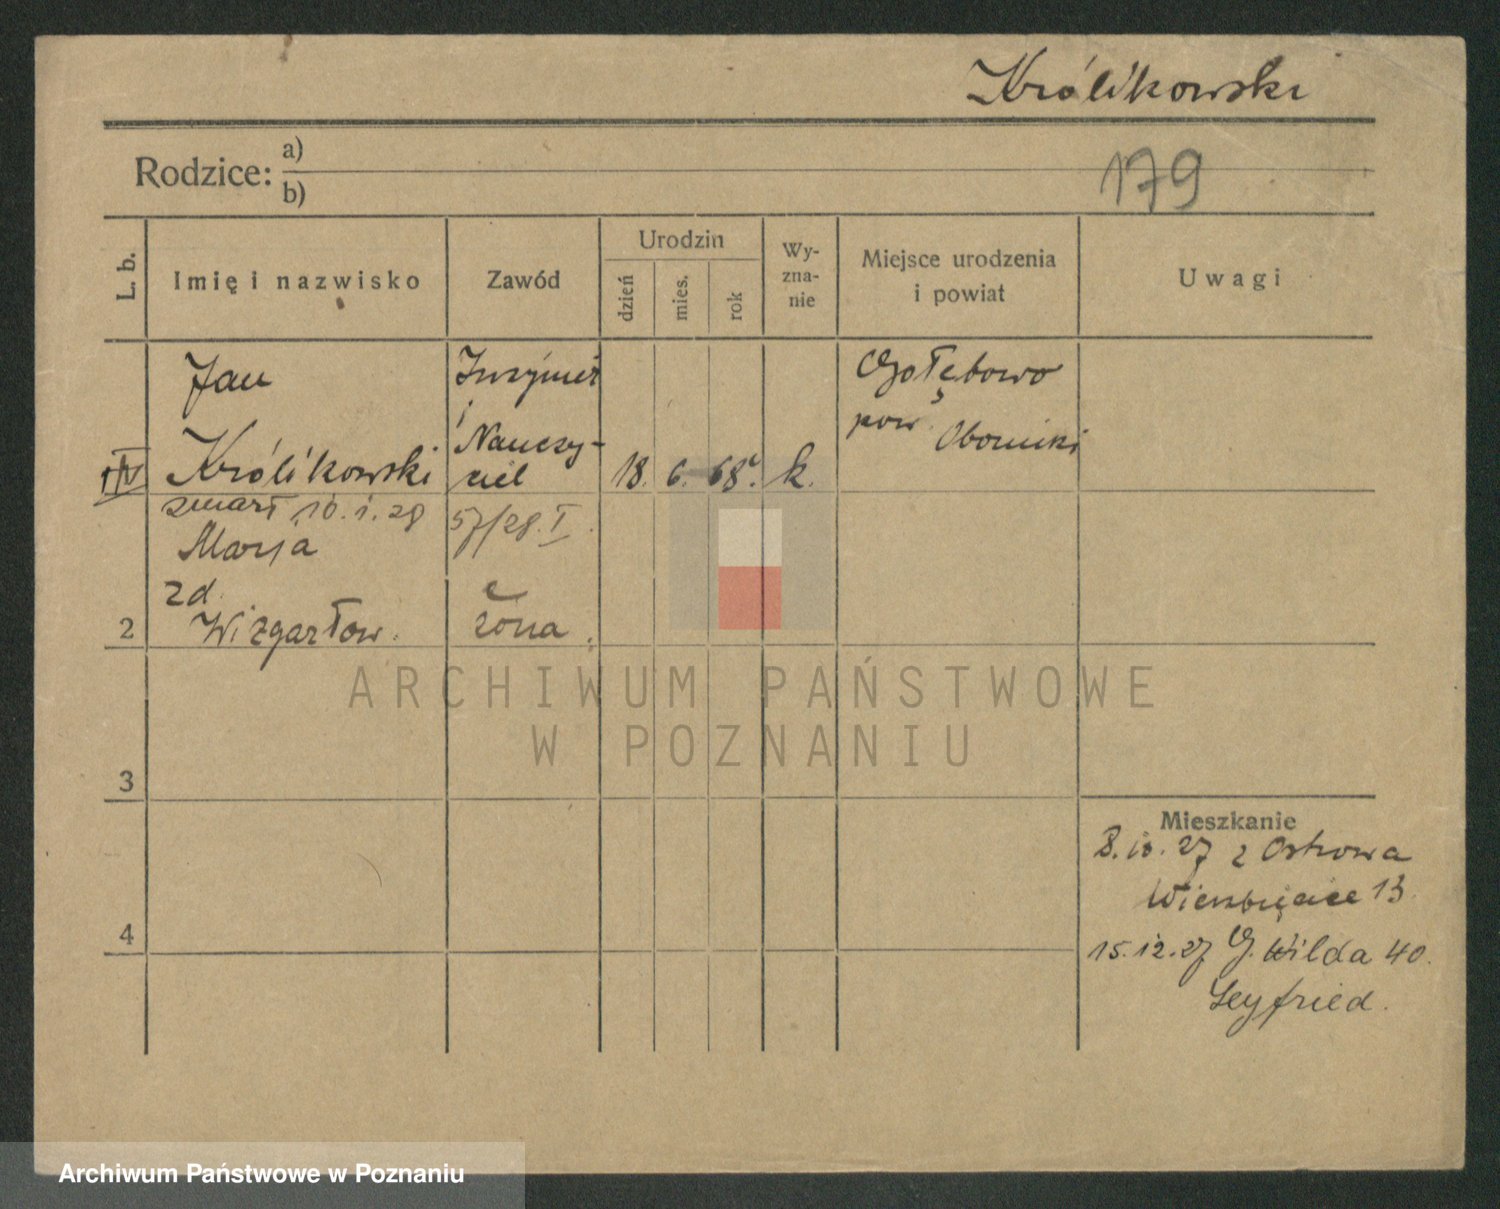 Królikowski
Rodzice: a)
b)
179
L. b.
Imię i nazwisko
Zawód
Urodzin
dzień
mies.
rok
Wy-
zna-
nie
Miejsce urodzenia
i powiat
Uwagi
Jan
Królikowski
Inżynier
i
Nauczy-
ciel
18. 6. 68. k.
Gołębowo
pow. Oborniki
zmarł 10.1.28
57/28. I.
Marja
zd.
2
żona.
3
4
Mieszkanie
8.10.27 z Ostrowa
Wierzbięcice 13.
15.12.27 G. Wilda 40.
Seyfried.
ARCHIWUM PAŃSTWOWE
W POZNANIU
Archiwum Państwowe w Poznaniu